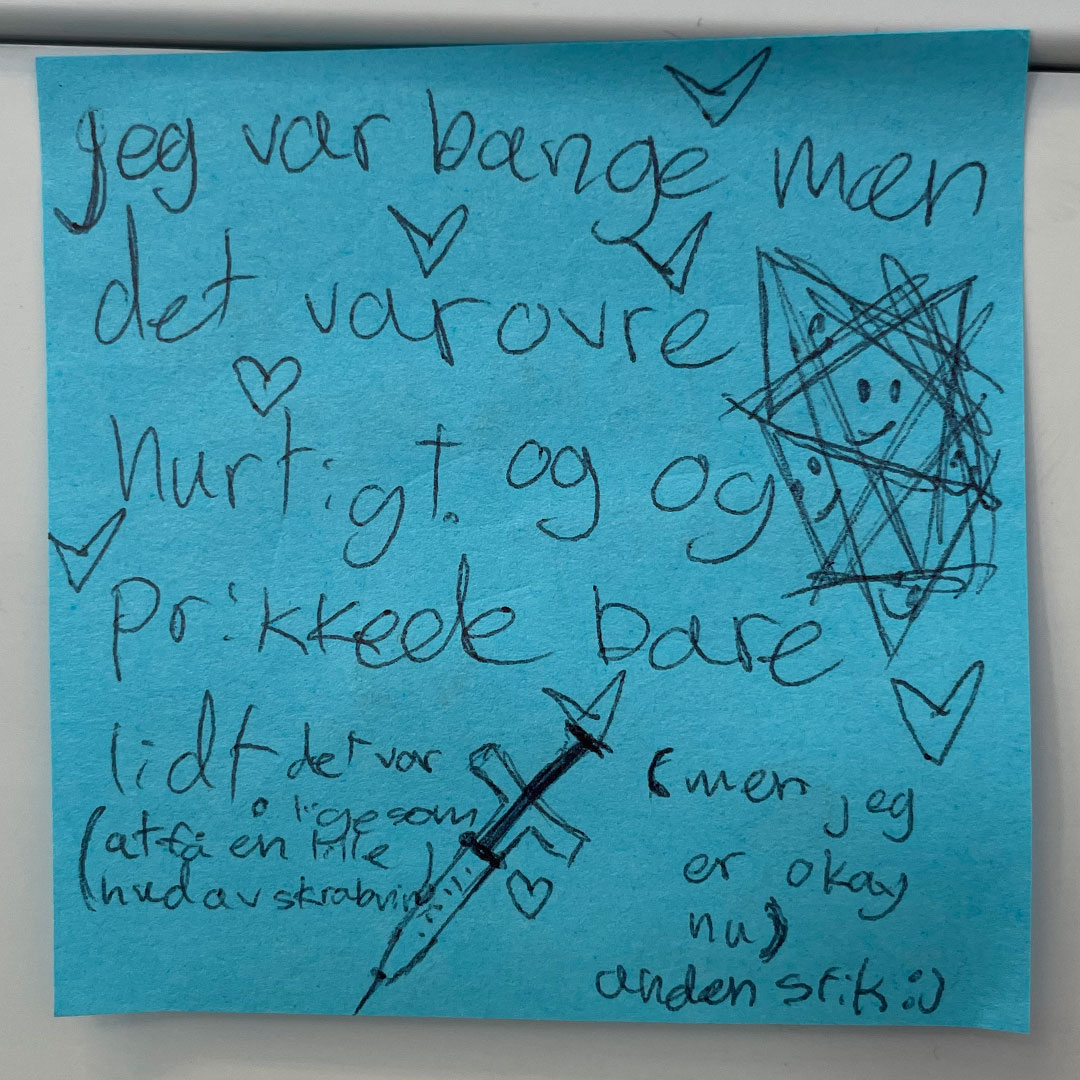 Jeg var bange mæn
det var ovre
hurtigt. og og
prikkede bare
lidt det var
ligesom
(at få en lille
hudavskrabning)
(men jeg
er okay
nu)
anden stik :)